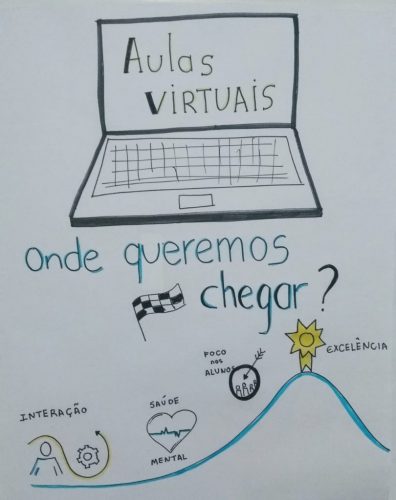 Aulas
VIRTUAIS
Onde queremos
chegar?
FOCO
nos
ALUNOS
EXCELÊNCIA
INTERAÇÃO
SAÚDE
MENTAL